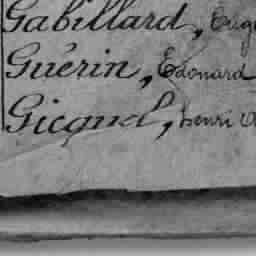 Gabillard, Eug
Guérin, Edouard
Gicquel, henri